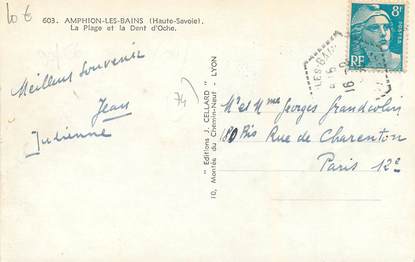 10 €
603. AMPHION-LES-BAINS (Haute-Savoie).
La Plage et la Dent d'Oche.
8F
POSTES
RF
LES-BAINS
16
Meilleur Souvenir
Jean
Julienne
74)
"Editions J. CELLARD"
10, Montée du Chemin-Neuf - LYON
Mr et Mme Georges Grandcolin
180 bis Rue de Charenton
Paris 12e